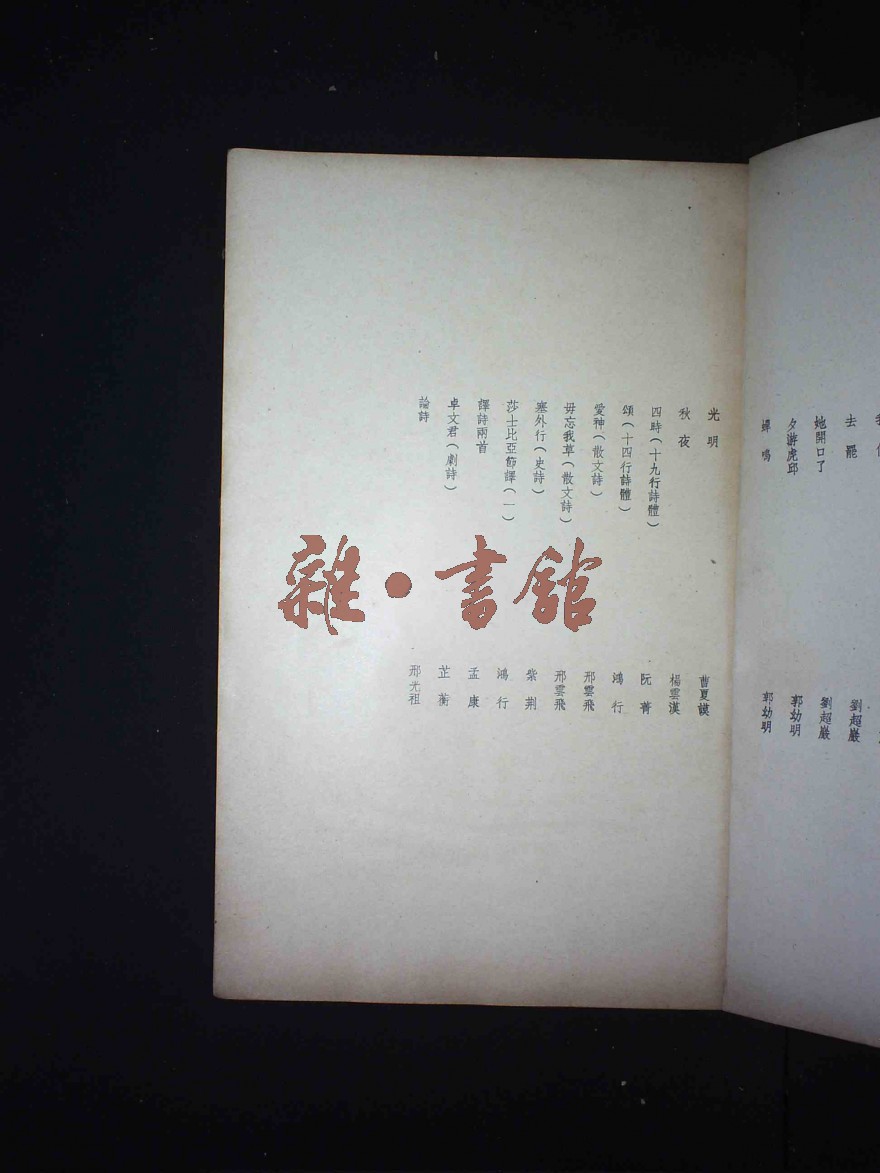 去罷 劉超巖
她開口了 劉超巖
夕游虎邱 郭幼明
蟬鳴 郭幼明
光明 曹夏謨
秋夜 楊雲漢
四時(十九行詩體) 阮菁
頌(十四行詩體) 鴻行
愛神(散文詩) 邢雲飛
毋忘我草(散文詩) 邢雲飛
塞外行(史詩) 紫荆
莎士比亞節譯(一) 鴻行
譯詩兩首 孟康
卓文君(劇詩) 芷蘅
論詩 邢光祖
雜·書館